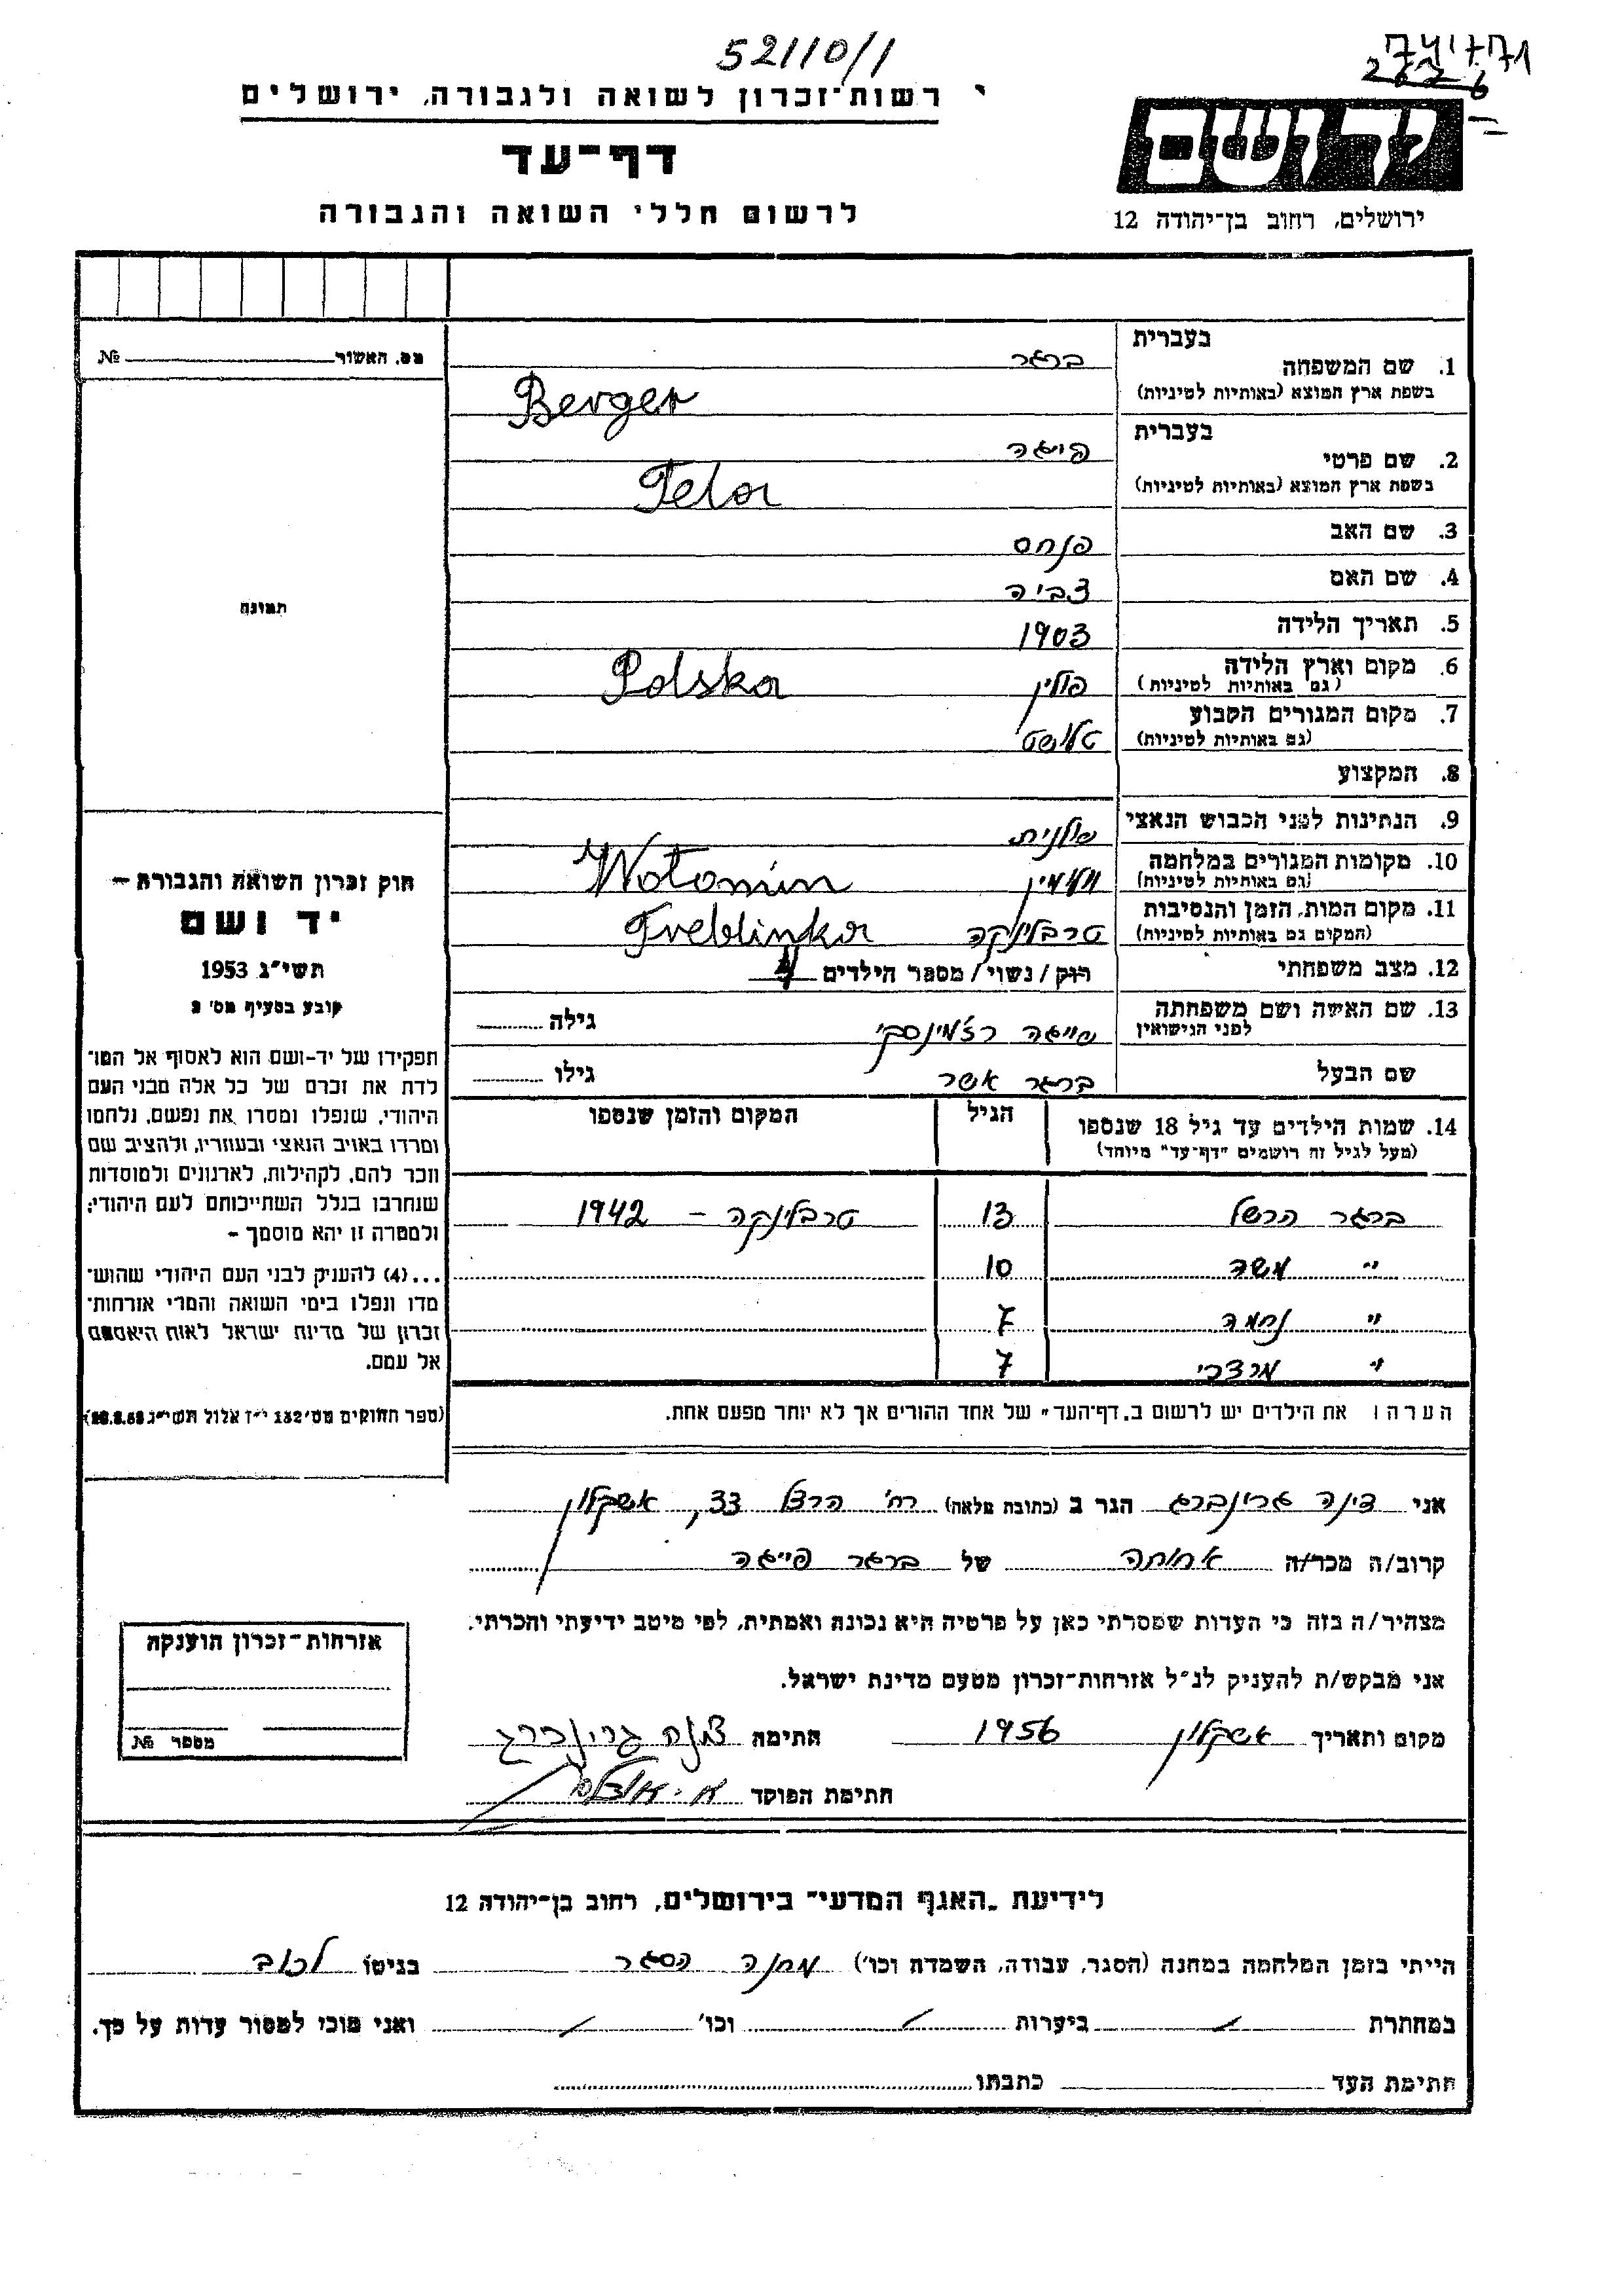 52110/1
רשות־זכרון לשואה ולגבורה, ירושלים
דף־עד
לרשום חללי השואה והגבורה
ידושם
ירושלים, רחוב בן־יהודה 12
בעברית
1. שם המשפחה ברגר
בשפת ארץ המוצא (באותיות לטיניות) Berger
בעברית
2. שם פרטי פייגה
בשפת ארץ המוצא (באותיות לטיניות) Fela
3. שם האב פנחס
4. שם האם צביה
5. תאריך הלידה 1903
6. מקום וארץ הלידה פולין Polska
(גם באותיות לטיניות)
7. מקום המגורים הקבוע
(גם באותיות לטיניות)
8. המקצוע
9. הנתינות לפני הכבוש הנאצי פולנית
10. מקומות המגורים במלחמה Wotomin
(גם באותיות לטיניות)
11. מקום המות, הזמן והנסיבות טרבלינקה Treblinka
(המקום גם באותיות לטיניות)
12. מצב משפחתי רווק / נשוי / מספר הילדים 4
13. שם האשה ושם משפחתה פייגה רז'מינסקי גילה
לפני הנישואין
שם הבעל ברגר אשר גילו
14. שמות הילדים עד גיל 18 שנספו הגיל המקום והזמן שנספו
(מעל לגיל זה רושמים "דף־עד" מיוחד)
ברגר הרשל 13 טרבלינקה – 1942
" משה 10
" נחמה 7
" מרדכי 7
הערה: את הילדים יש לרשום ב"דף־העד" של אחד ההורים אך לא יותר מפעם אחת.
מס. האשור №
תמונה
חוק זכרון השואה והגבורה –
יד ושם
תשי"ג 1953
קובע בסעיף מס' 2
תפקידו של יד-ושם הוא לאסוף אל המו־
לדת את זכרם של כל אלה מבני העם
היהודי, שנפלו ומסרו את נפשם, נלחמו
ומרדו באויב הנאצי ובעוזריו, ולהציב שם
וזכר להם, לקהילות, לארגונים ולמוסדות
שנחרבו בגלל השתייכותם לעם היהודי;
ולמטרה זו יהא מוסמך –
...(4) להעניק לבני העם היהודי שהוש־
מדו ונפלו בימי השואה והמרי אזרחות־
זכרון של מדינת ישראל לאות היאספם
אל עמם.
(ספר החוקים מס' 132 י"ז אלול תשי"ג 28.8.53)
אני דינה גרינברג הגר ב (כתובת מלאה) רח' הרצל 33, אשקלון
קרוב/ה מכר/ה אחותה של ברגר פייגה
מצהיר/ה בזה כי העדות שמסרתי כאן על פרטיה היא נכונה ואמתית, לפי מיטב ידיעתי והכרתי.
אני מבקש/ת להעניק לנ"ל אזרחות־זכרון מטעם מדינת ישראל.
מקום ותאריך אשקלון 1956 חתימה דינה גרינברג
חתימת הפוקד
אזרחות־זכרון הוענקה
מספר №
לידיעת "האגף המדעי" בירושלים, רחוב בן־יהודה 12
הייתי בזמן המלחמה במחנה (הסגר, עבודה, השמדה וכו') מחנה הסגר בגיטו לבוב
במחתרת ביערות וכו' ואני מוכן למסור עדות על כך.
חתימת העד כתבתו